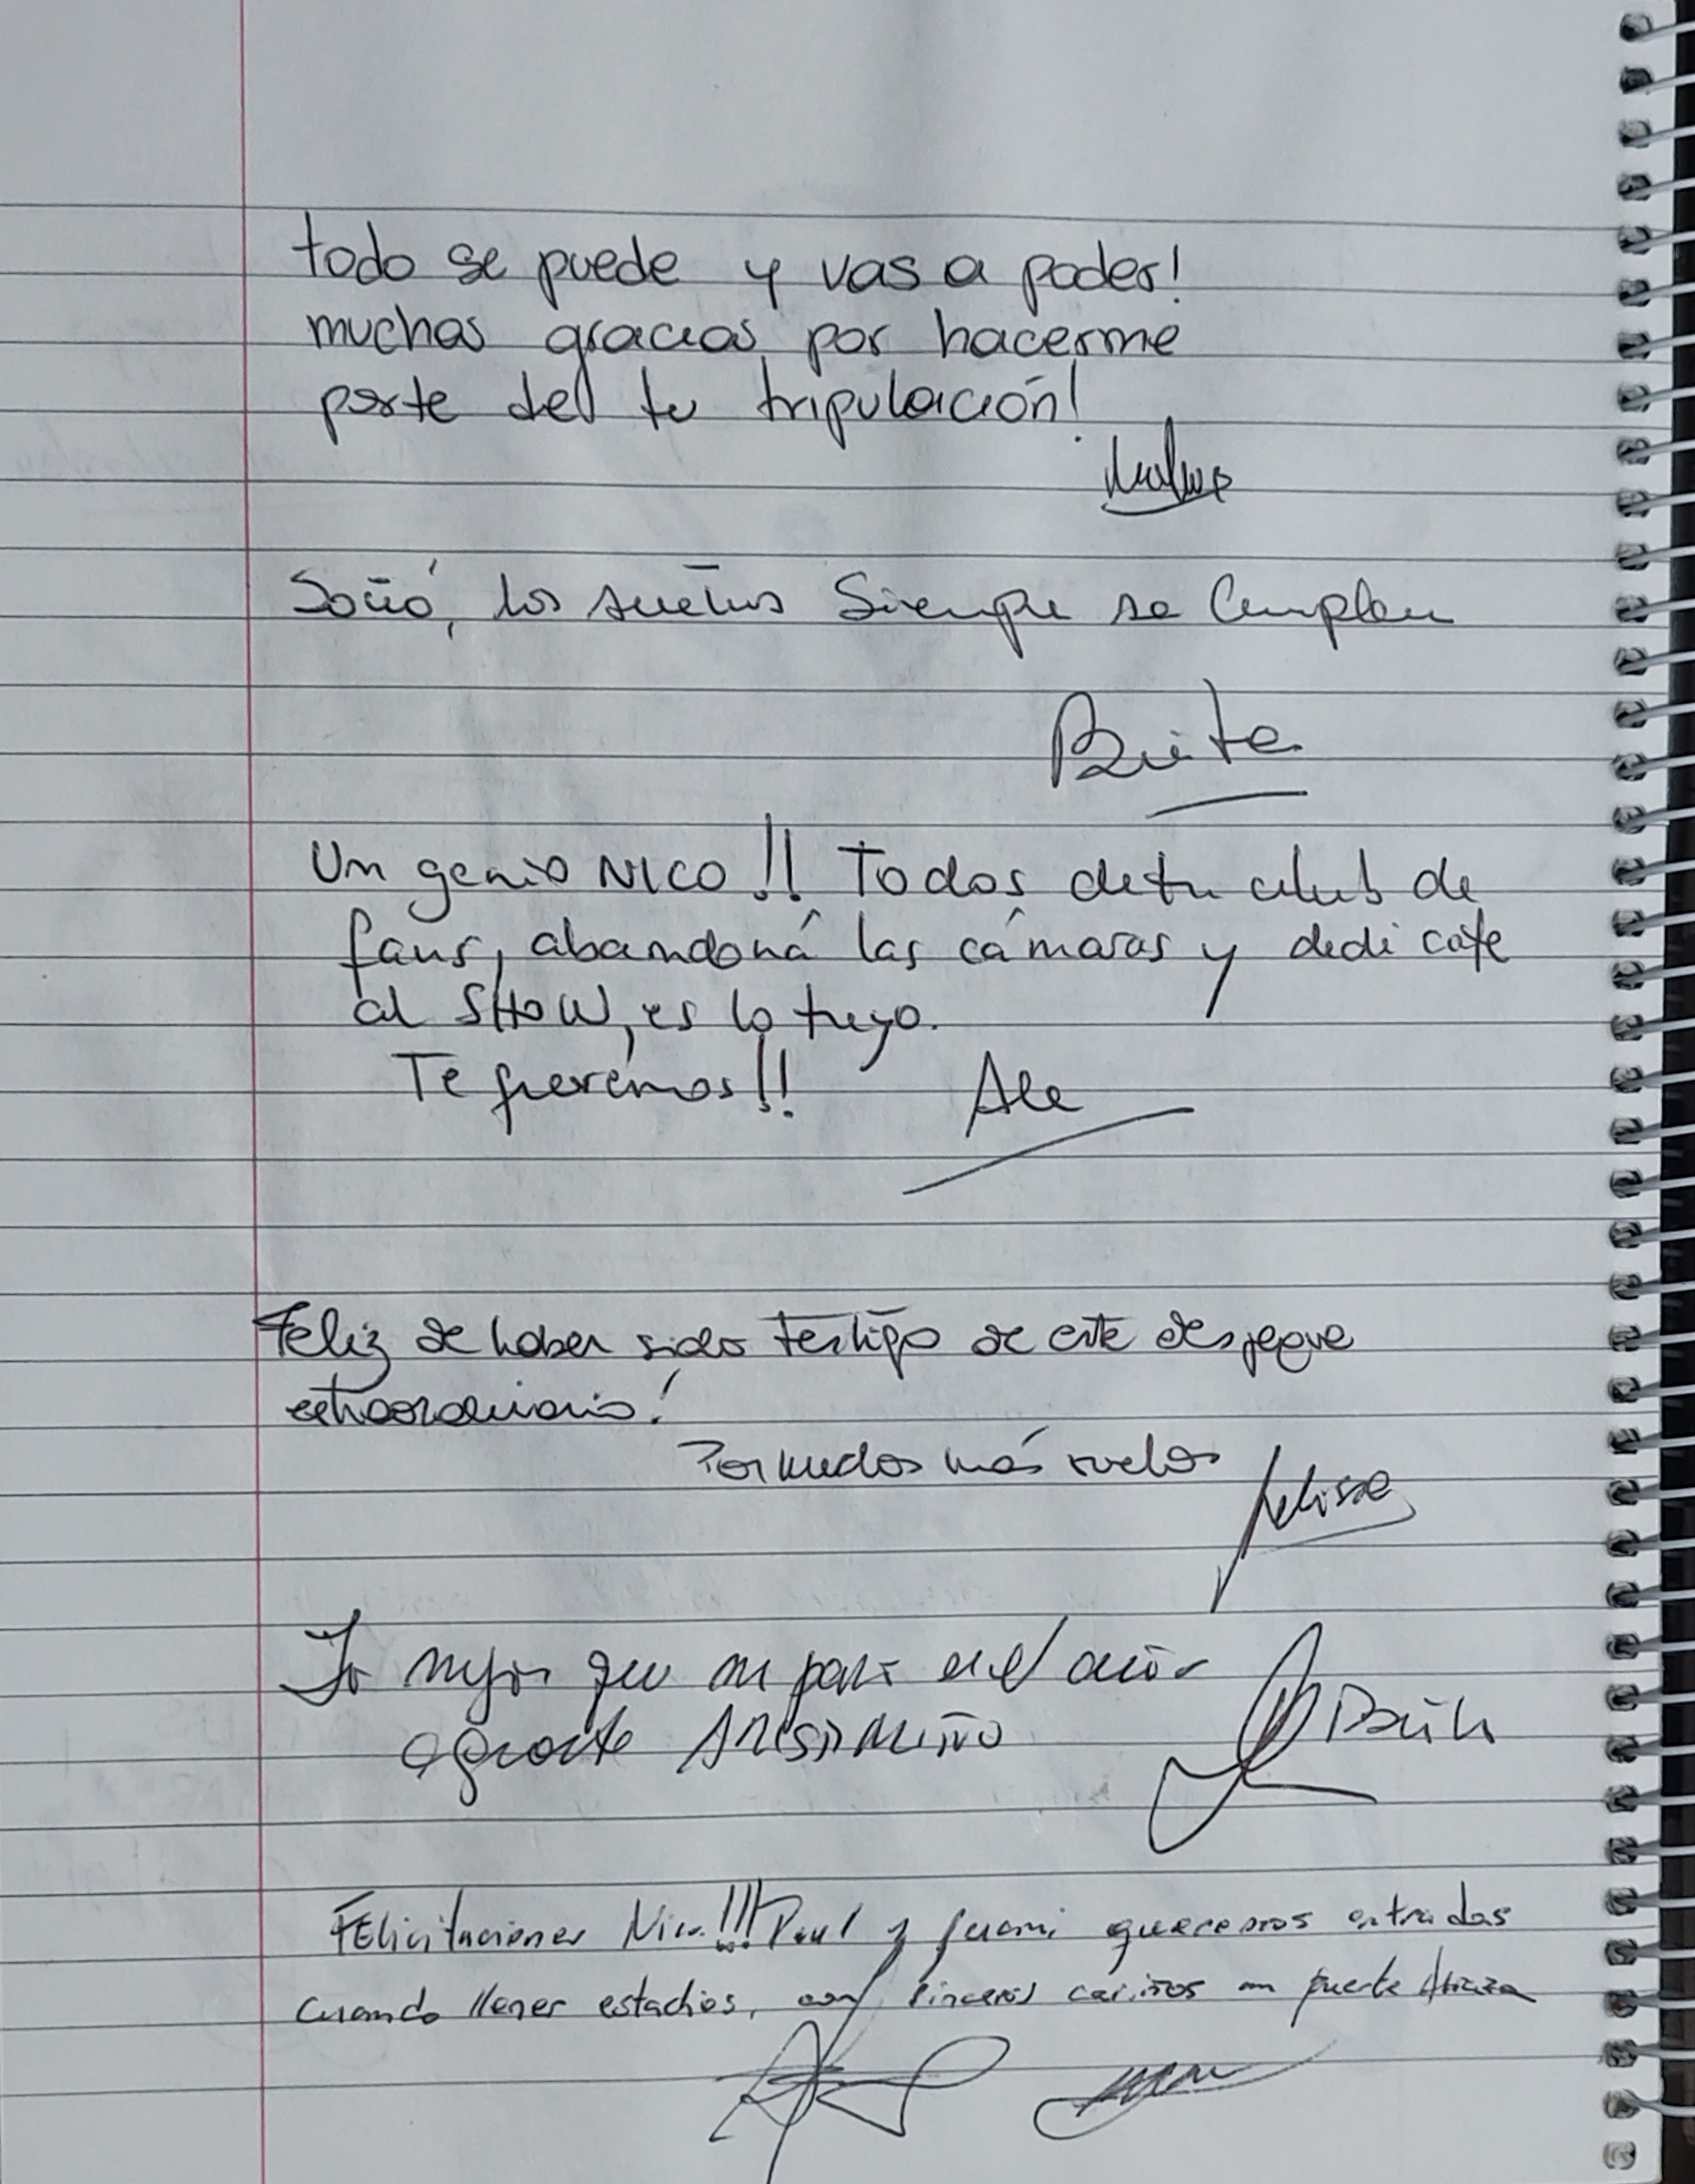 todo se puede y vas a poder!
muchas gracias por hacerme
parte del tu tripulación!
Soñá, los sueños Siempre se Cumplen
Un genio NICO!! Todos de tu club de
fans, abandoná las cámaras y dedicate
al SHOW, es lo tuyo.
Te queremos!! Ale
Feliz de haber sido testigo de este despegue
extraordinario!
Por muchos más vuelos Melissa
lo mejor que me paso en el año
aguante
FElicitaciones Nico!!! Paul y Juani queremos entradas
cuando llenes estadios, con sinceros cariños un fuerte Abrazo